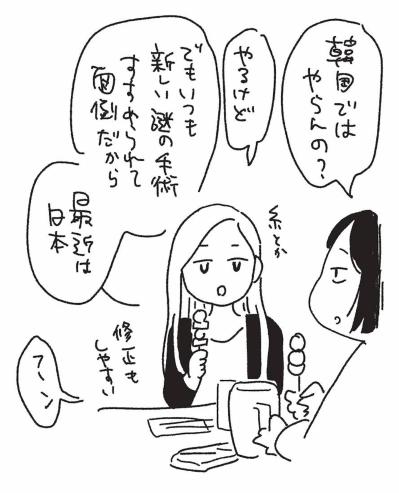 韓国では
やらんの?
やるけど
でもいつも
新しい謎の手術
すすめられて
面倒だから
最近は
日本
糸とか
修正も
しやすい
フーン